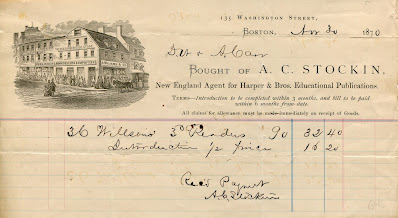 135 Washington Street,
Boston, Nov 30 1870
A. Carr
Bought of A. C. STOCKIN,
New England Agent for Harper & Bros. Educational Publications.
Terms—Introduction to be completed within 3 months, and bill to be paid
within 6 months from date.
All claims for allowance must be made immediately on receipt of Goods.
36 Willsons 3d Readers 90 32 40
Introduction ½ price 16 20
Rec'd Paymt
A C Stockin